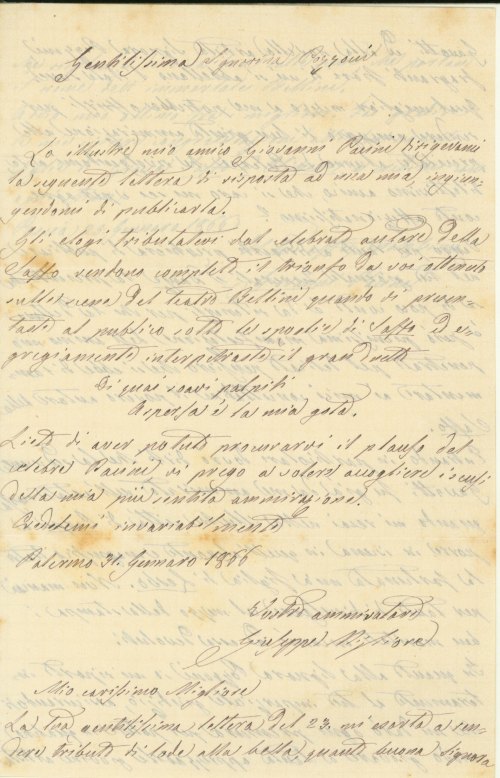 Gentilissima Signorina Pozzoni
Lo illustre mio amico Giovanni Pacini dirigevami
la seguente lettera di risposta ad una mia, ingiun-
gendomi di publicarla.
Gli elogi tributativi dal celebrato autore della
Saffo rendono completo il trionfo da voi ottenuto
sulle scene del teatro Bellini quando vi presen-
taste al publico sotto le spoglie di Saffo ed e-
gregiamente interpetraste il gran duetto
Di quai soavi palpiti
Aspersa è la mia gota.
Lieto di aver potuto procurarvi il plauso del
celebre Pacini vi prego a volere accogliere i sensi
della mia più sentita ammirazione.
Credetemi invariabilmente
Palermo 31. Gennaro 1866
Vostro ammiratore
Giuseppe Migliore
Mio carissimo Migliore
La tua gentilissima lettera del 23. mi esorta a ren-
dere tributo di lode alla bella quanto buona Signora